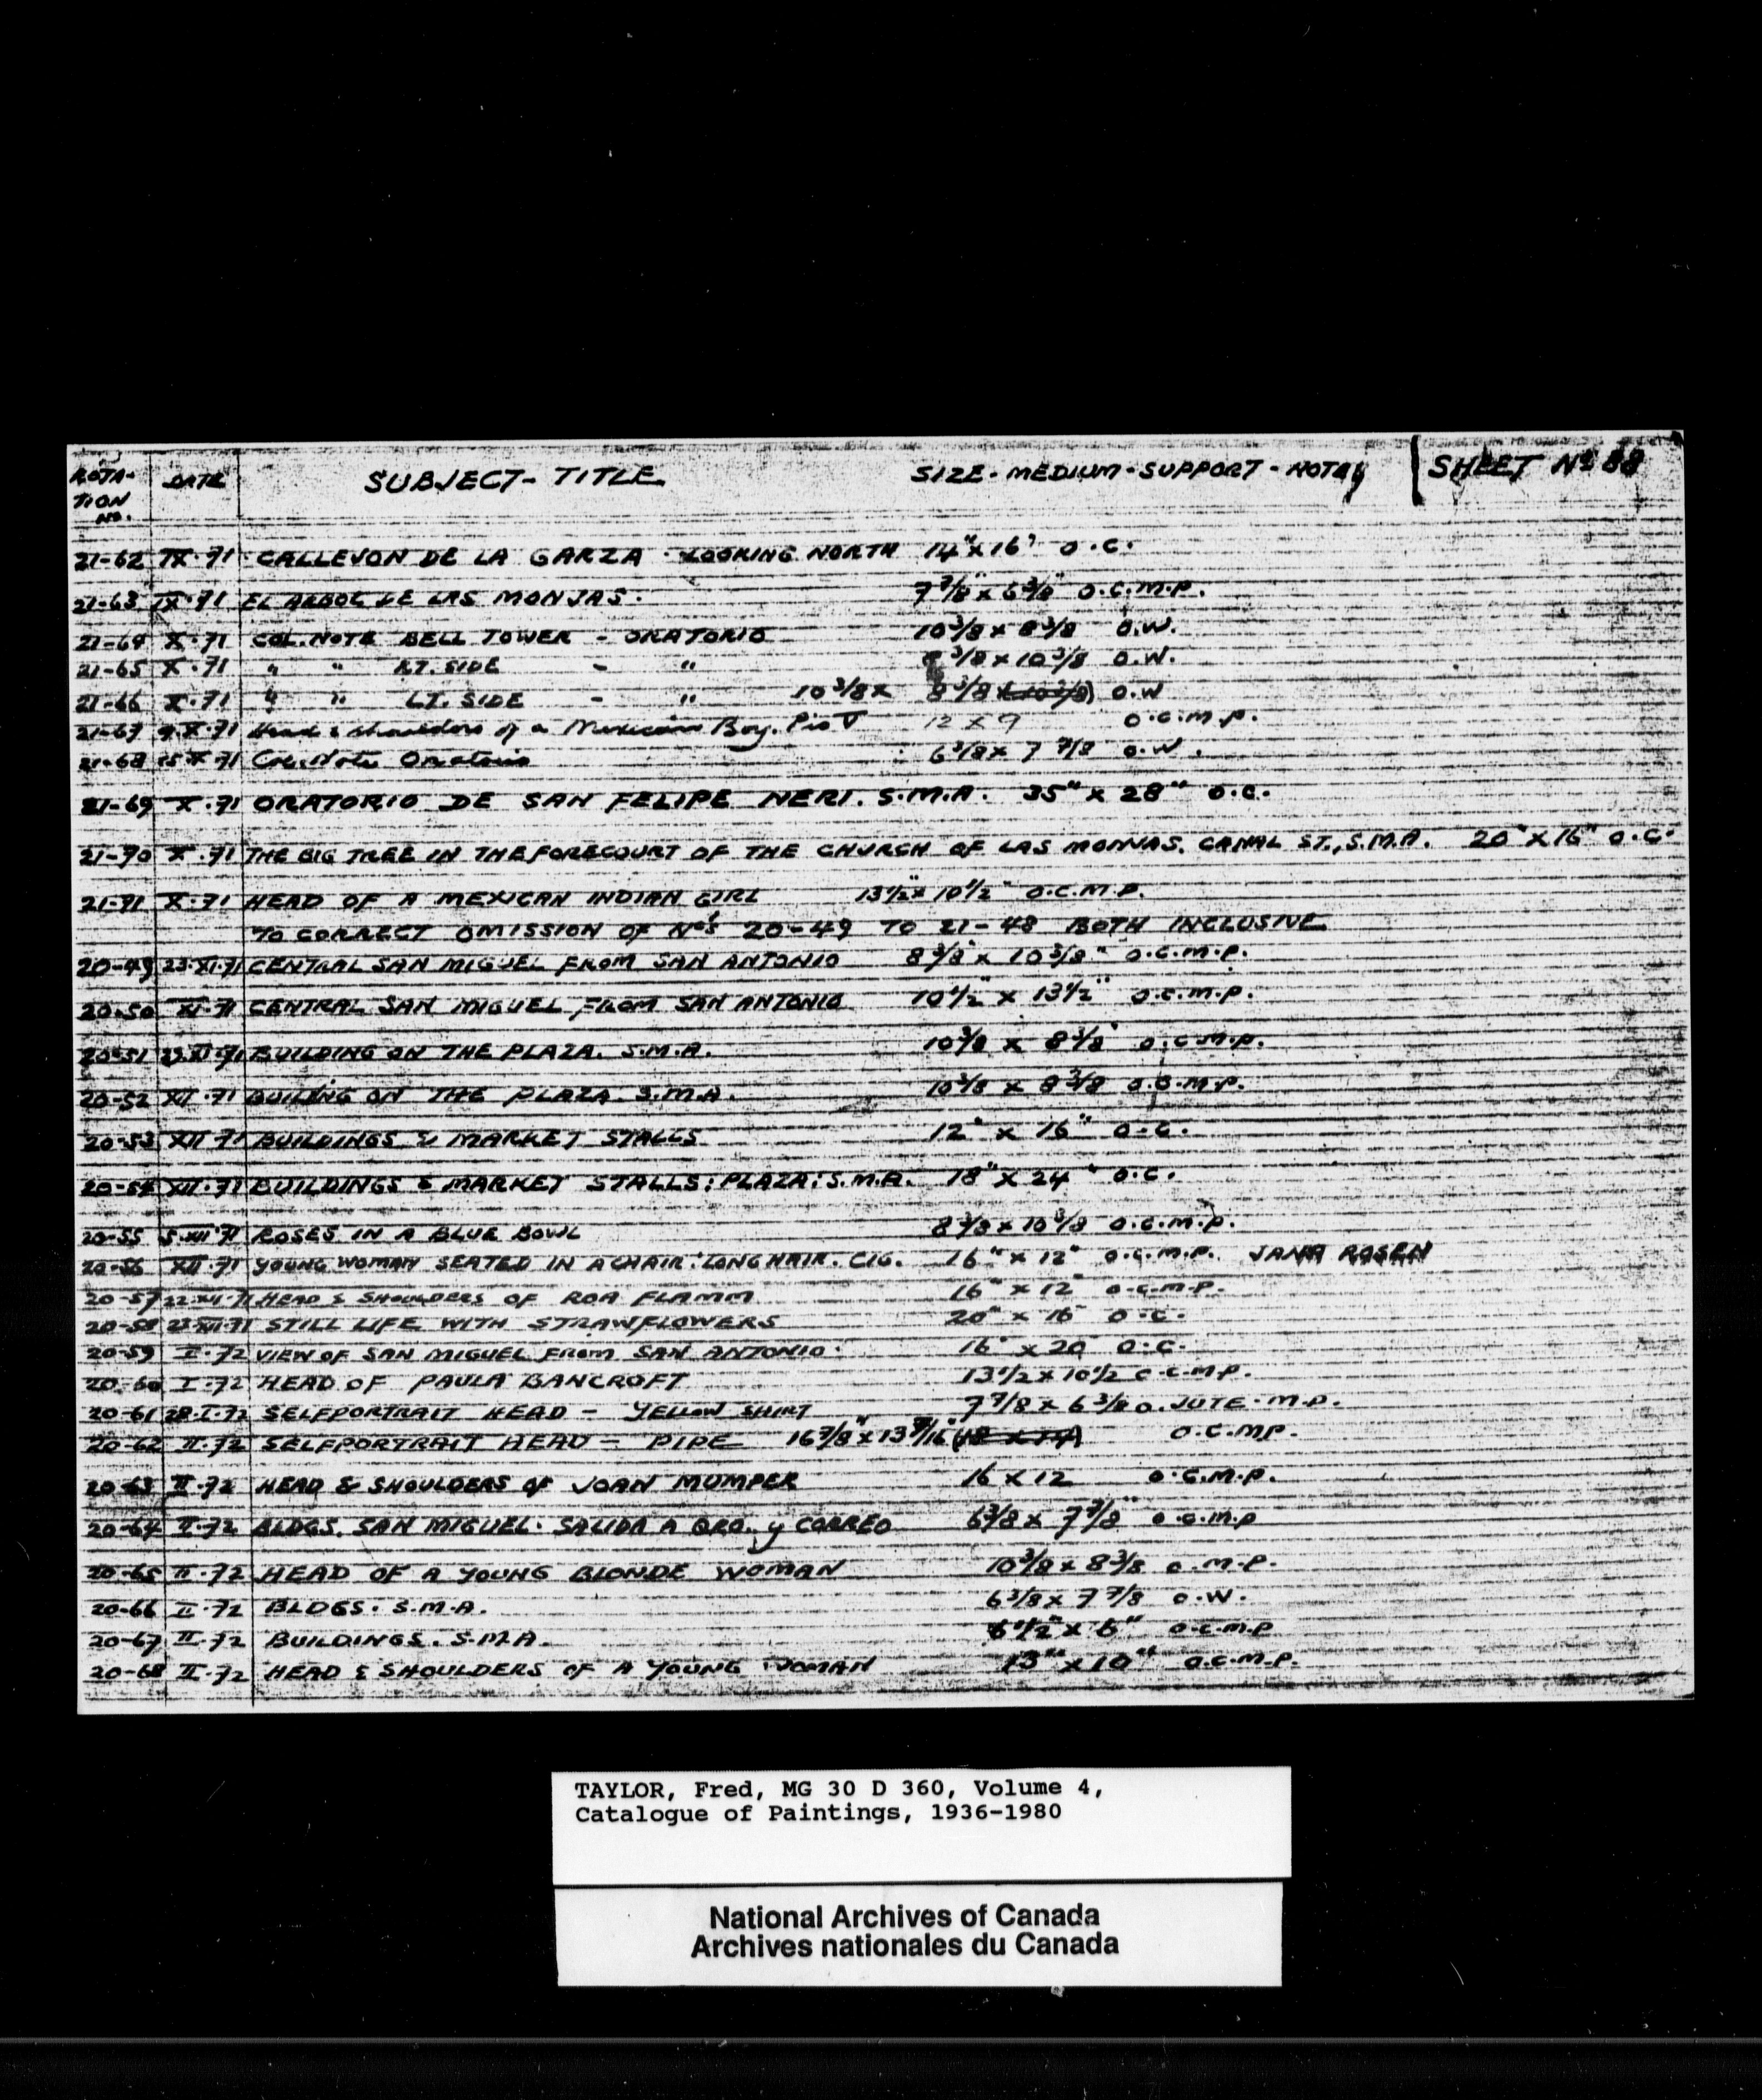 ROTA- DATE SUBJECT - TITLE SIZE - MEDIUM - SUPPORT - NOTES SHEET Nº 88
TION
NO.
21-62 IX·71 CALLEJON DE LA GARZA · LOOKING NORTH 14" x 16" O.C.
21-63 IX·71 EL ARBOL DE LAS MONJAS. 7 7/8" x 6 3/8" O.C.M.P.
21-64 X·71 COL. NOTE BELL TOWER - ORATORIO 10 3/8 x 8 3/8 O.W.
21-65 X·71 " " RT. SIDE - " 8 3/8 x 10 3/8 O.W.
21-66 X·71 " " LT. SIDE - " 10 3/8 x 8 3/8 (x 10 3/8) O.W
21-67 9·X·71 Head & shoulders of a Mexican Boy. Pio V 12 x 9 O.C.M.P.
21-68 15·X·71 Col. Note Oratorio 6 3/8 x 7 7/8 O.W.
21-69 X·71 ORATORIO DE SAN FELIPE NERI. S.M.A. 35" x 28" O.C.
21-70 X·71 THE BIG TREE IN THE FORECOURT OF THE CHURCH OF LAS MONJAS, CANAL ST., S.M.A. 20" x 16" O.C.
21-71 X·71 HEAD OF A MEXICAN INDIAN GIRL 13 1/2" x 10 1/2" O.C.M.P.
TO CORRECT OMISSION OF Nos 20-49 TO 21-48 BOTH INCLUSIVE
20-49 23·XI·71 CENTRAL SAN MIGUEL FROM SAN ANTONIO 8 3/8" x 10 3/8" O.C.M.P.
20-50 XI·71 CENTRAL SAN MIGUEL FROM SAN ANTONIO 10 1/2" x 13 1/2" O.C.M.P.
20-51 XI·71 BUILDING ON THE PLAZA. S.M.A. 10 3/8 x 8 3/8" O.C.M.P.
20-52 XII·71 BUILDING ON THE PLAZA. S.M.A. 10 3/8 x 8 3/8 O.C.M.P.
20-53 XII 71 BUILDINGS & MARKET STALLS 12" x 16" O.C.
20-54 XII·71 BUILDINGS & MARKET STALLS: PLAZA: S.M.A. 18" x 24" O.C.
20-55 5·XII·71 ROSES IN A BLUE BOWL 8 3/8 x 10 3/8 O.C.M.P.
20-56 XII·71 YOUNG WOMAN SEATED IN A CHAIR: LONG HAIR. CIG. 16" x 12" O.C.M.P. JANA ROSEN
20-57 22·XII·71 HEAD & SHOULDERS OF ROA FLAMM 16" x 12" O.C.M.P.
20-58 23·XII·71 STILL LIFE WITH STRAWFLOWERS 20" x 16" O.C.
20-59 I·72 VIEW OF SAN MIGUEL FROM SAN ANTONIO. 16" x 20" O.C.
20-60 I·72 HEAD OF PAULA BANCROFT 13 1/2 x 10 1/2 O.C.M.P.
20-61 28·I·72 SELFPORTRAIT HEAD - YELLOW SHIRT 7 7/8 x 6 3/8 O. JUTE. M.P.
20-62 II·72 SELFPORTRAIT HEAD - PIPE 16 7/8" x 13 9/16" O.C.MP.
20-63 II·72 HEAD & SHOULDERS OF JOAN MUMPER 16 x 12 O.C.M.P.
20-64 II·72 BLDGS. SAN MIGUEL. SALIDA A QRO. y CORREO 6 3/8 x 7 7/8" O.C.M.P
20-65 II·72 HEAD OF A YOUNG BLONDE WOMAN 10 3/8 x 8 3/8 O.M.P.
20-66 II·72 BLDGS. S.M.A. 6 3/8 x 7 7/8 O.W.
20-67 II·72 BUILDINGS. S.M.A. 6 1/2" x 6" O.C.M.P
20-68 II·72 HEAD & SHOULDERS OF A YOUNG WOMAN 13" x 10" O.C.M.P.
TAYLOR, Fred, MG 30 D 360, Volume 4,
Catalogue of Paintings, 1936-1980
National Archives of Canada
Archives nationales du Canada